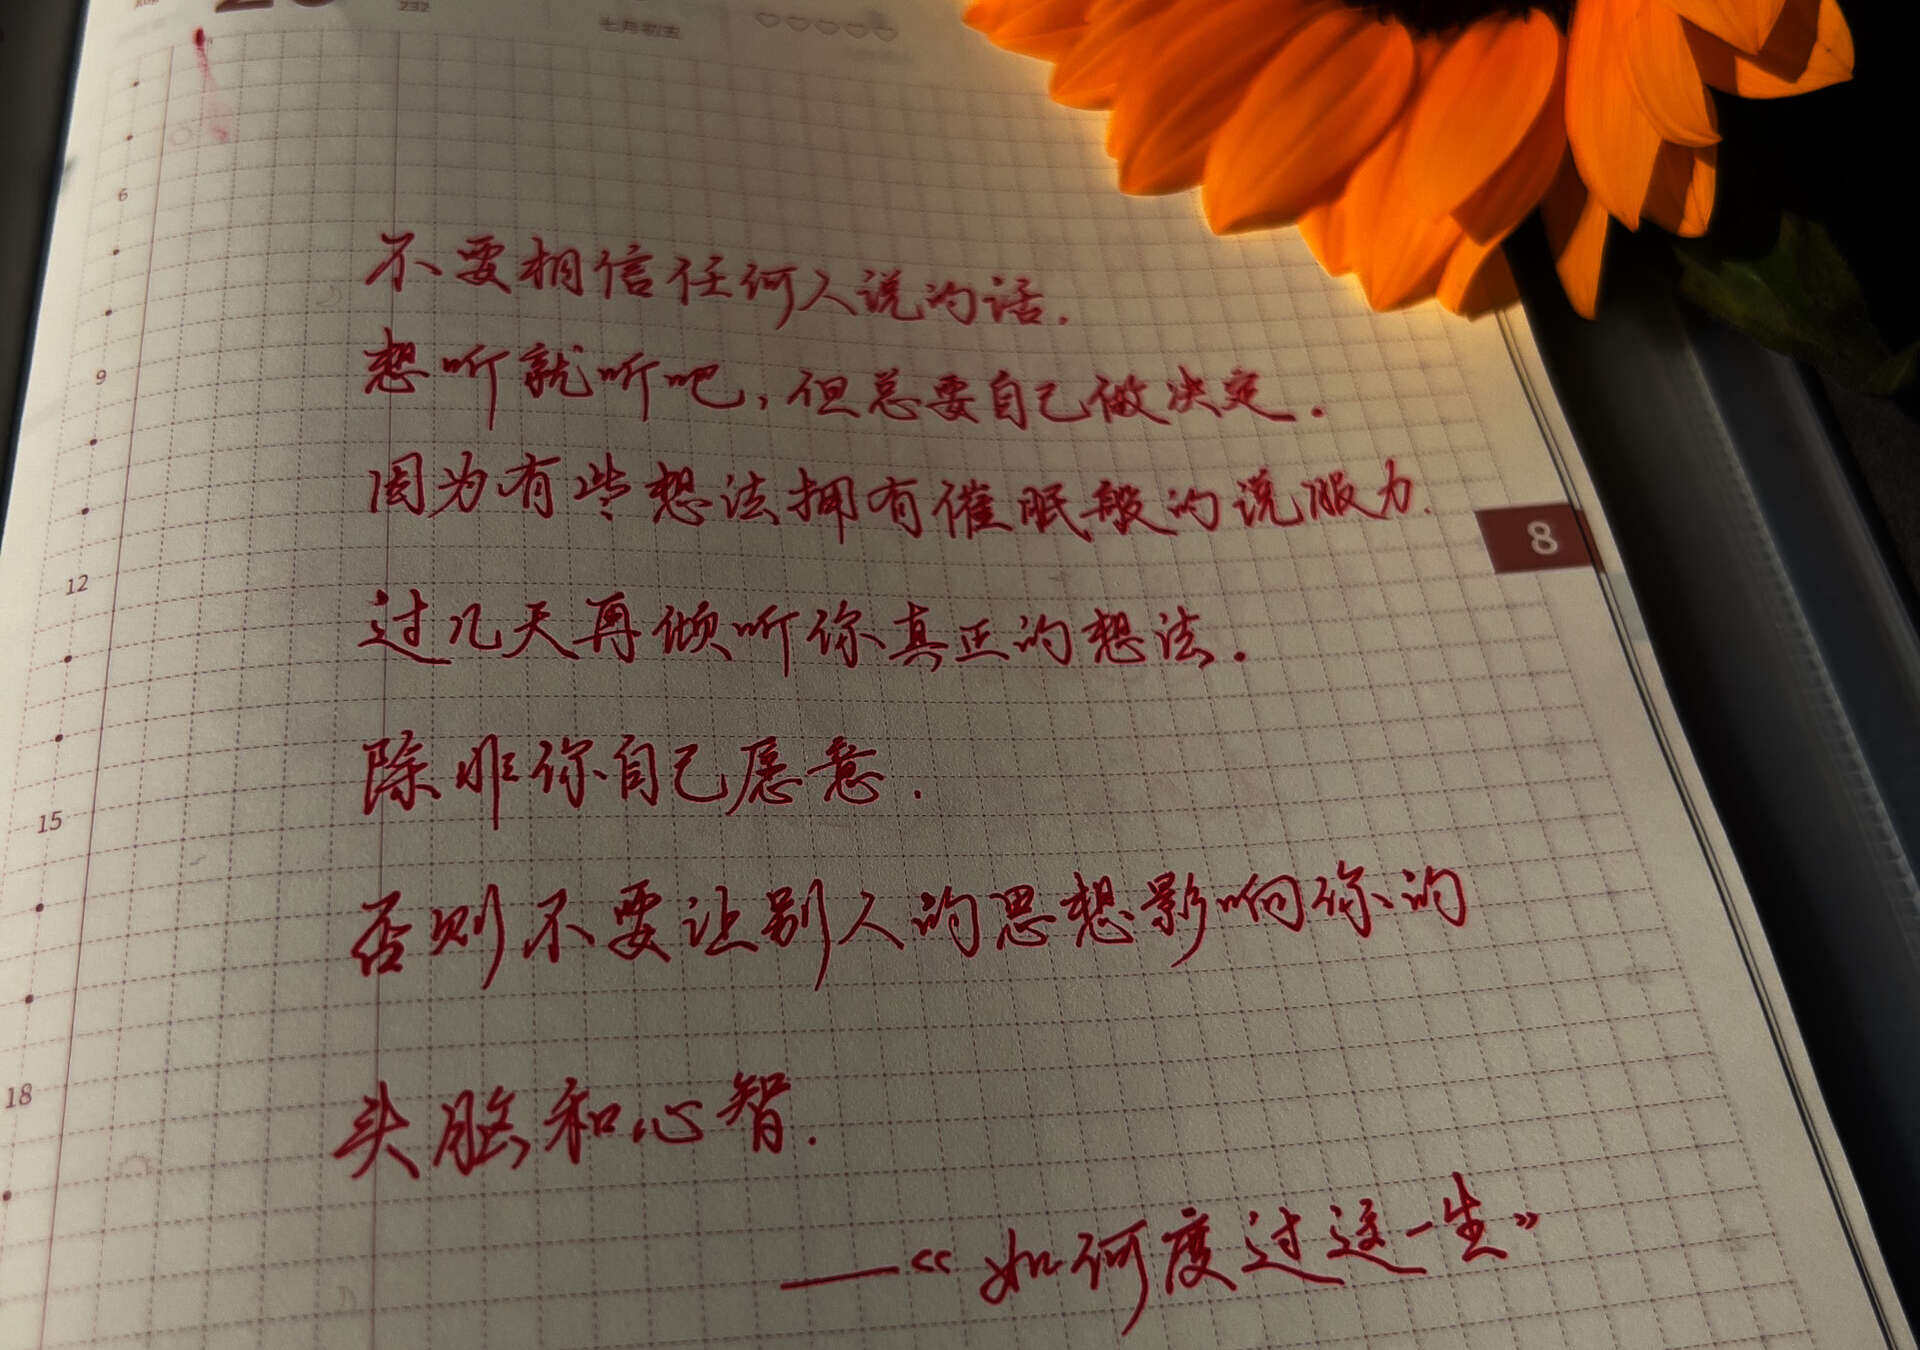 232
七月初五
不要相信任何人说的话.
想听就听吧,但总要自己做决定.
因为有些想法拥有催眠般的说服力.
8
过几天再倾听你真正的想法.
除非你自己愿意.
否则不要让别人的思想影响你的
头脑和心智.
——《如何度过这一生》
6
9
12
15
18